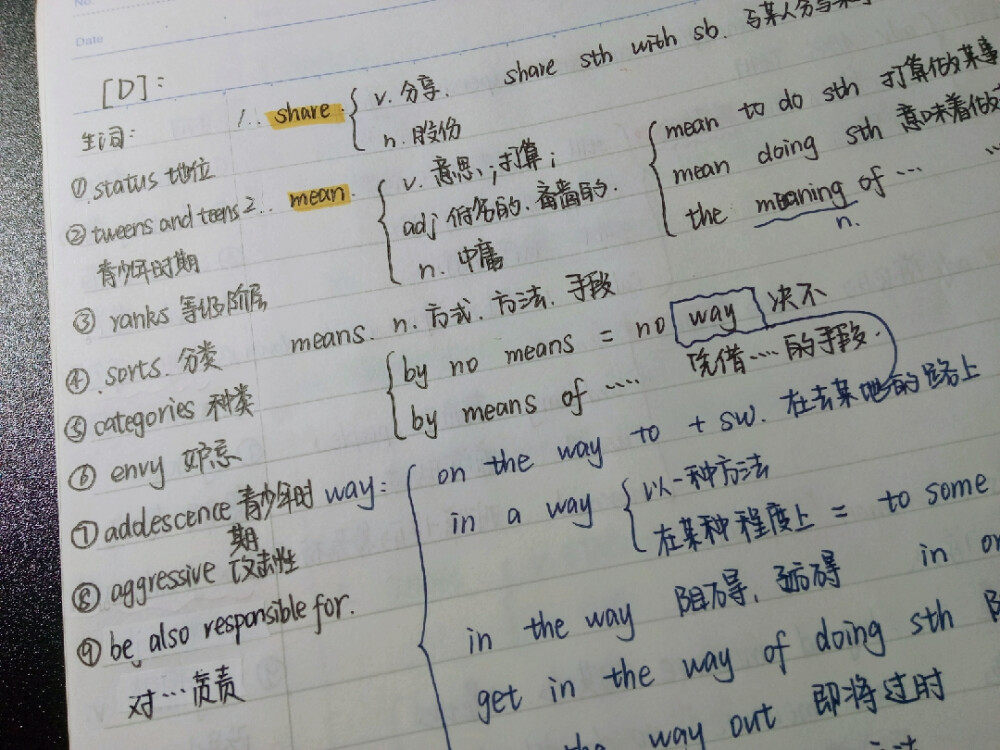 No.
Date
[D]:
生词:
① status 地位
② tweens and teens
青少年时期
③ ranks 等级阶层
④ sorts 分类
⑤ categories 种类
⑥ envy 妒忌
⑦ addescence 青少年时
期
⑧ aggressive 攻击性
⑨ be also responsible for.
对…负责
1.. share { v. 分享. share sth with sb. 与某人分享
n. 股份
2.. mean. { v. 意思,;打算;
adj 俗名的. 吝啬的.
n. 中庸
{ mean to do sth 打算做某事
mean doing sth 意味着做
the meaning of …
n.
means. n. 方式. 方法. 手段
{ by no means = no way 决不
by means of …. 凭借…. 的手段.
way: { on the way to + sw. 在去某地的路上
in a way { 以一种方法
在某种程度上 = to some
in the way 阻碍, 妨碍 in
get in the way of doing sth
way out 即将过时